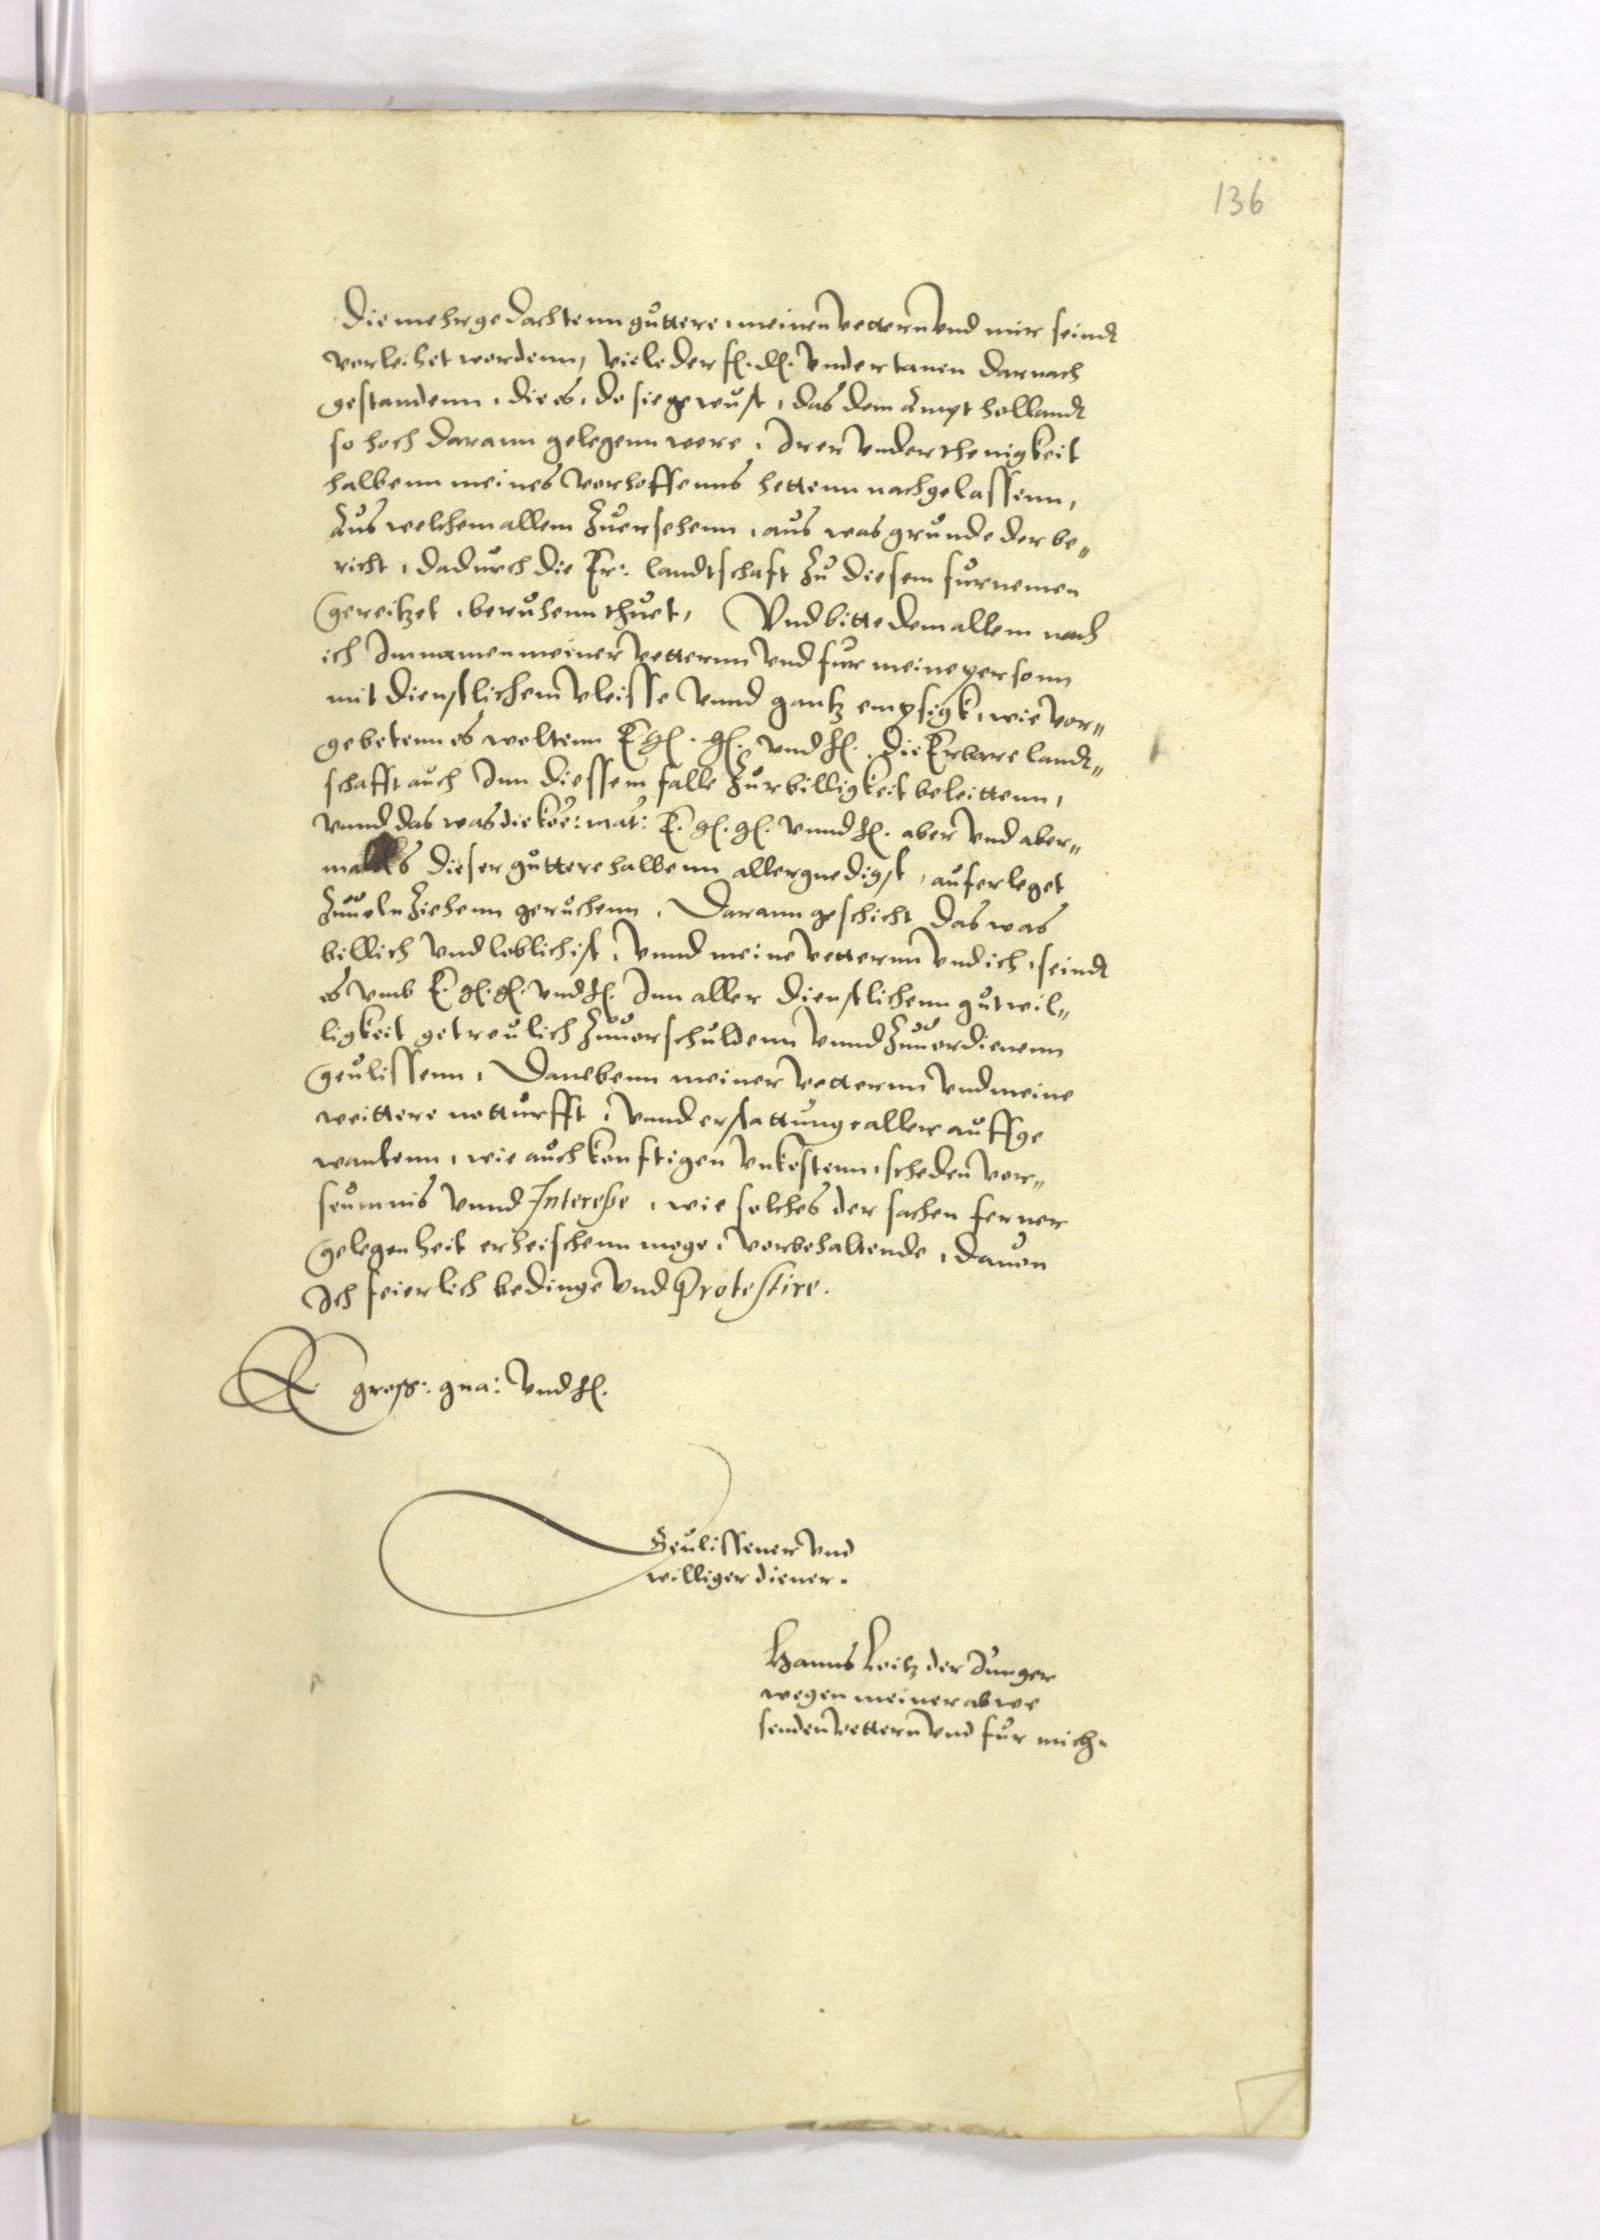 136
Die mehrgedachtenn guttere, meinen vettern vnd mir seindt
vorleihet wordenn, viele der f. d. vndertanen darnach
gestandenn, die es, do sie gewust, das dem ampt hollandt
so hoch darann gelegenn were, Irer vnderthenigkeit
halbenn meines vorhoffenns hettenn nachgelassenn,
Aus welchem allem Zuersehenn, aus was grunde der be„
richt, dadurch die Er: landtschaft Zu diesem furnemen
gereitzet, beruhenn thuet, Vnd bitte dem allem nach
ich Im namen meiner vetternn vnd fur meine personn
mit dienstlichem vleisse vnnd gantz empsigk, wie vor„
gebetenn es woltenn E. g. g. vnd h. die Erbare landt„
schafft auch Inn diessem falle Zur billigkeit beleittenn,
vnnd das was die koe: mat: E. g. g. vnnd h. aber vnd aber„
malls dieser guttere halbenn allergnedigst, auferleget
Zuuolnziehenn geruhenn, Darann geschicht das was
billich vnd loblich ist, vnnd meine vetternn vnd ich, seindt
es vmb E. g. g. vnd h. Inn aller dienstlichenn gutwil„
ligkeit getreulich Zuuorschuldenn vnnd Zuuordienenn
geulissenn, Danebenn meiner vetternn vnd meine
weittere notturfft, vnnd erstattunge aller auffge
wantenn, wie auch konftigen vnkostenn, scheden vor„
seumnis vnnd Interesse, wie solches der sachen ferner
gelegenheit erheischenn moge, vorbehaltende, dauon
Ich feierlich bedinge vnd Protestire.
E. gross: gna: vnd h.
Geulissener vnd
williger diener.
Hanns Keitz der Junger
wegen meiner abwe
senden vettern vnd fur mich.